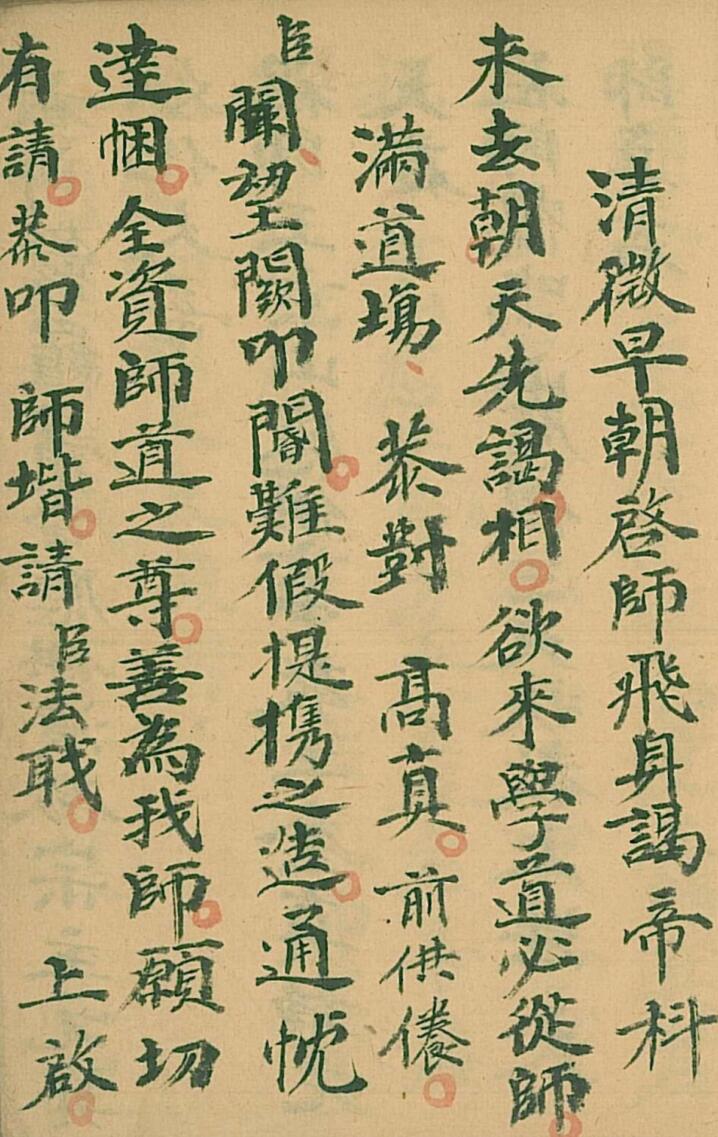 清微早朝啓師飛身謁帝科
未去朝天先謁相。欲來學道必從師。
滿道塲、 恭對 高真。前供養。
臣聞、望闕叩閽。難假提携之造。通忱
達悃。全資師道之尊。善為我師。願切
有請。恭叩 師堦。請臣法職。 上啟。